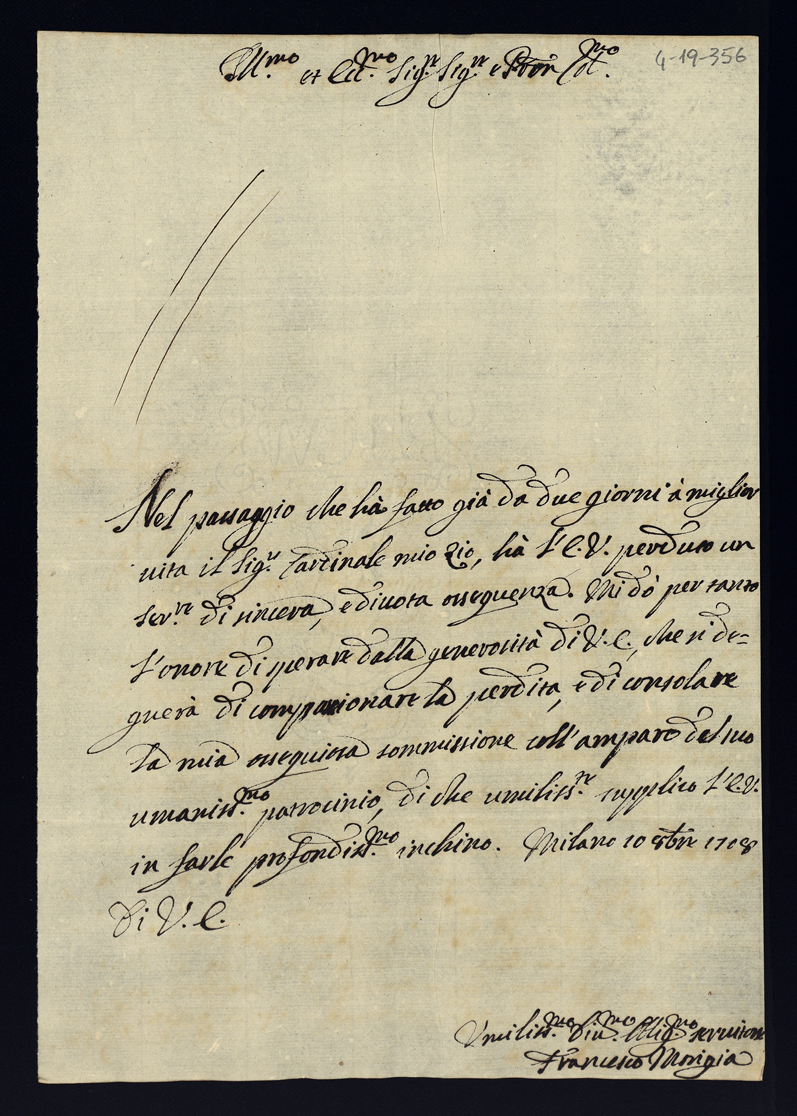 Ill.mo et Ecc.mo Sig.re Sig.re e Pron Col.mo
4-19-356
Nel passaggio che hà fatto già da due giorni à miglior
vita il Sig.r Cardinale mio Zio, hà l'E.V. perduto un
Ser.re di sincera, e divota ossequenza. Mi dò per tanto
l'onore di sperare dalla generosità di V.E., che si de=
guerà di compasionare la perdita, e di consolare
la mia ossequiosa sommissione coll'amparo del suo
umaniss.mo patrocinio, di che umiliss.te supplico l'E.V.
in farle profondiss.mo inchino. Milano 10 8bre 1708
Di V.E.
Umiliss.mo Div.mo Oblig.mo servitore
Francesco Morigia